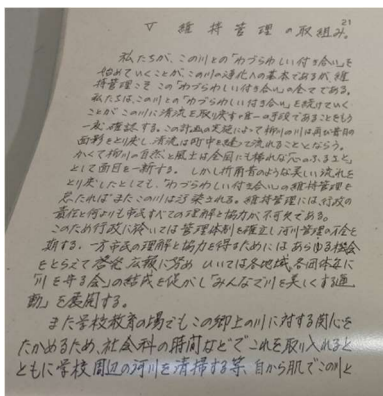 21
▽ 維持管理の取組み。
私たちが、この川との「わづらわしい付き合い」を
始めていくことが、この川の浄化への基本であるが、維
持管理こそ この「わづらわしい付き合い」の全てである。
私たちは、この川との「わづらわしい付き合い」を続けていく
ことが この川に清流を取り戻す唯一の手段であることをもう
一度 確認する。この計画の実施によって柳川の川は再び昔日の
面影をとり戻し 清流は町中を縫って流れることとなろう。
かくて柳川の自然と風土は全国にも稀れな「心のふるさと」
として面目を一新する。しかし 折角昔の美しい流れを
とり戻したとしても、「わづらわしい付き合い」の維持管理を
怠たれば またこの川は汚染される。維持管理には、行政の
責任と何よりも市民すべての理解と協力が不可欠である。
このため行政に於いては管理体制を確立し河川管理の万全を
期する。一方市民の理解と協力を得るためには あらゆる機会
をとらえて啓発 広報に努め ひいては各地域、各団体毎に
「川を守る会」の結成を促がし「みんなで川を美しくする運
動」を展開する。
また学校教育の場でもこの郷土の川に対する関心を
たかめるため、社会科の時間などでこれを取り入れると
ともに学校周辺の河川を清掃する等 自から肌でこの川と